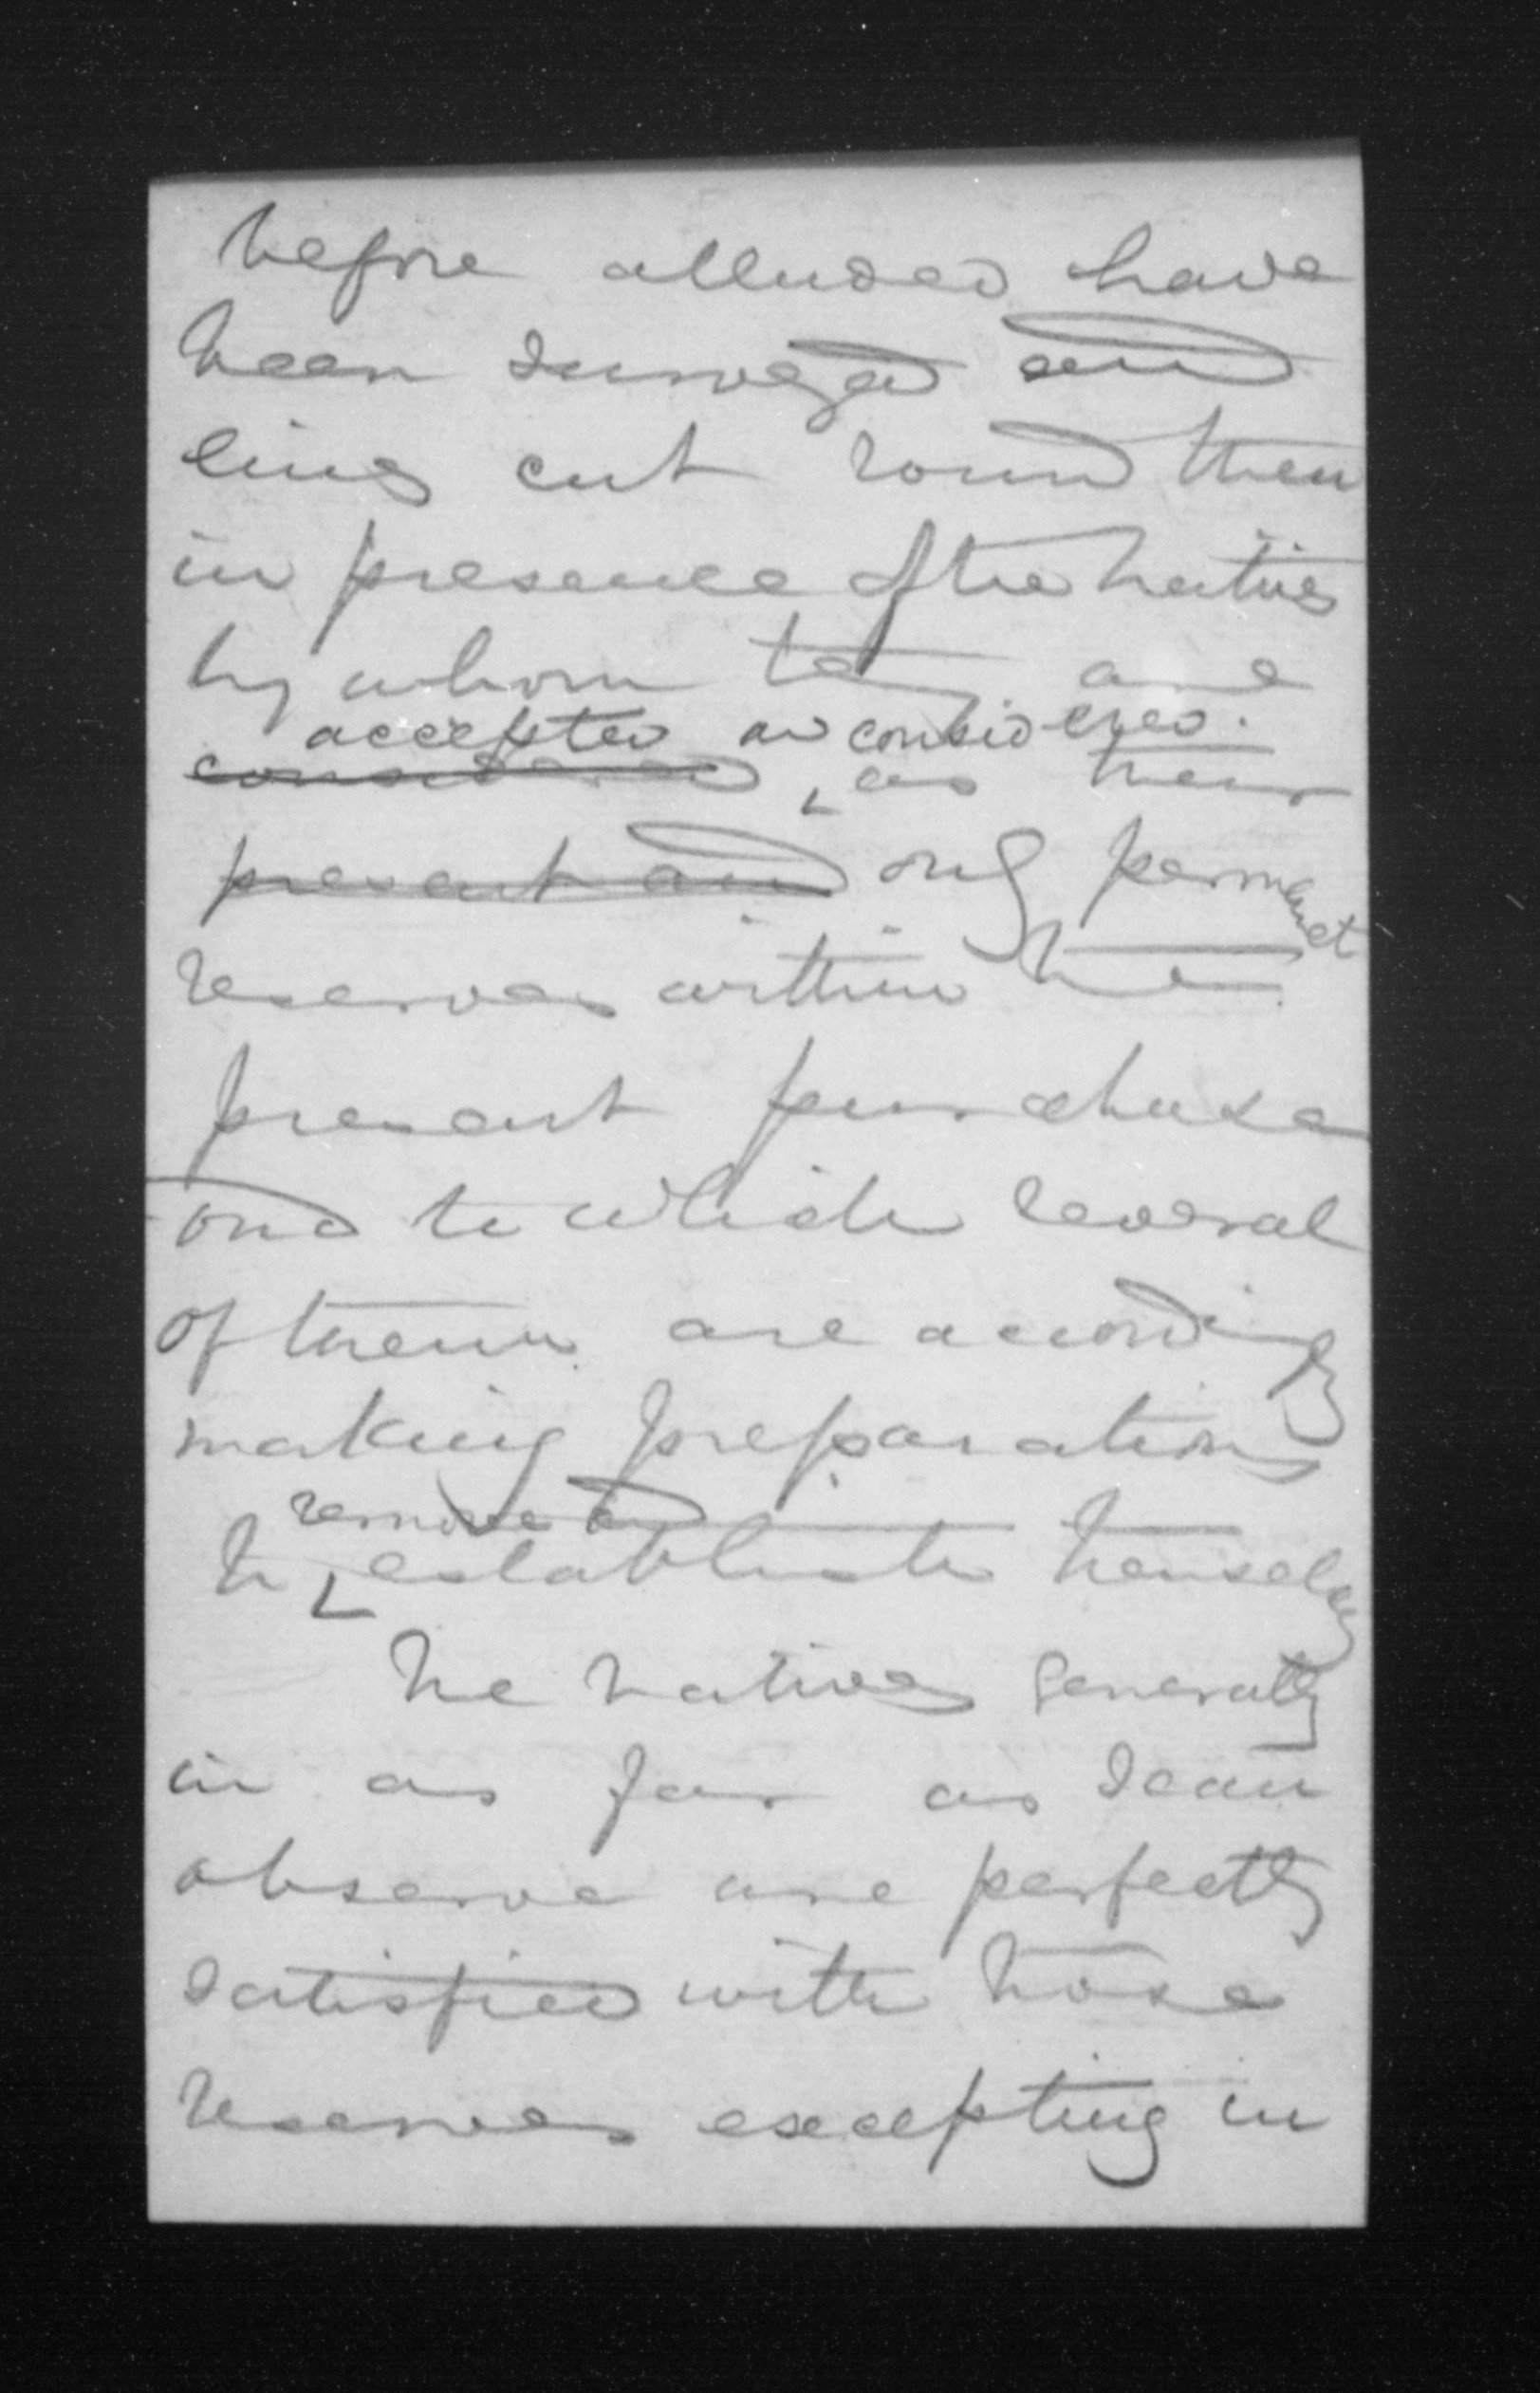 before alluded have
been surveyed and
lines cut round them
in presence of the natives
by whom they are
accepted and considered.
considered as their
present and only permanent
reserves within the
present purchase
and to which several
of them are accordingly
making preparations
remove and
to establish themselves
The natives generally
in as far as I can
observe are perfectly
satisfied with those
reserves excepting in